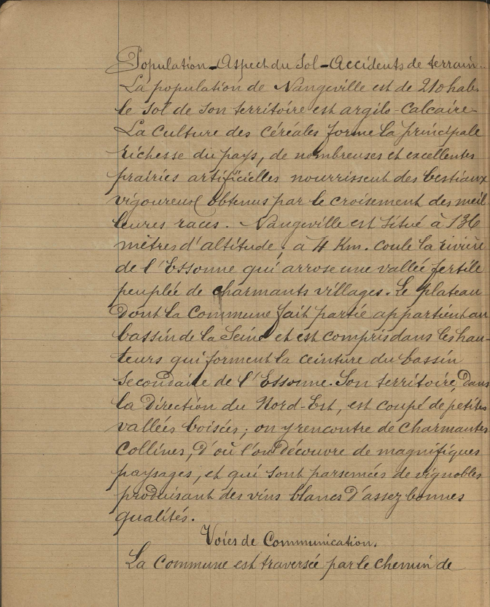 Population - Aspect du Sol - Accidents de terrain -
La population de Nangeville est de 210 hab.
le sol de son territoire est argilo-Calcaire -
La Culture des céréales forme la principale
richesse du pays, de nombreuses et excellentes
prairies artificielles nourrissent des bestiaux
vigoureux obtenus par le croisement des meil
leures races. Nangeville est situé à 136
mètres d'altitude. à 4 Km. coule la rivière
de l'Essonne qui arrose une vallée fertile
peuplée de charmants villages. Le plateau
dont la Commune fait partie appartient au
bassin de la Seine et est compris dans les hau-
teurs qui forment la ceinture du bassin
secondaire de l'Essonne. Son territoire, dans
la direction du Nord-Est, est coupé de petites
vallées boisées; on y rencontre de charmantes
collines, d'où l'on découvre de magnifiques
paysages, et qui sont parsemées de vignobles
produisant des vins blancs d'assez bonnes
qualités.
Voies de Communication.
La Commune est traversée par le chemin de